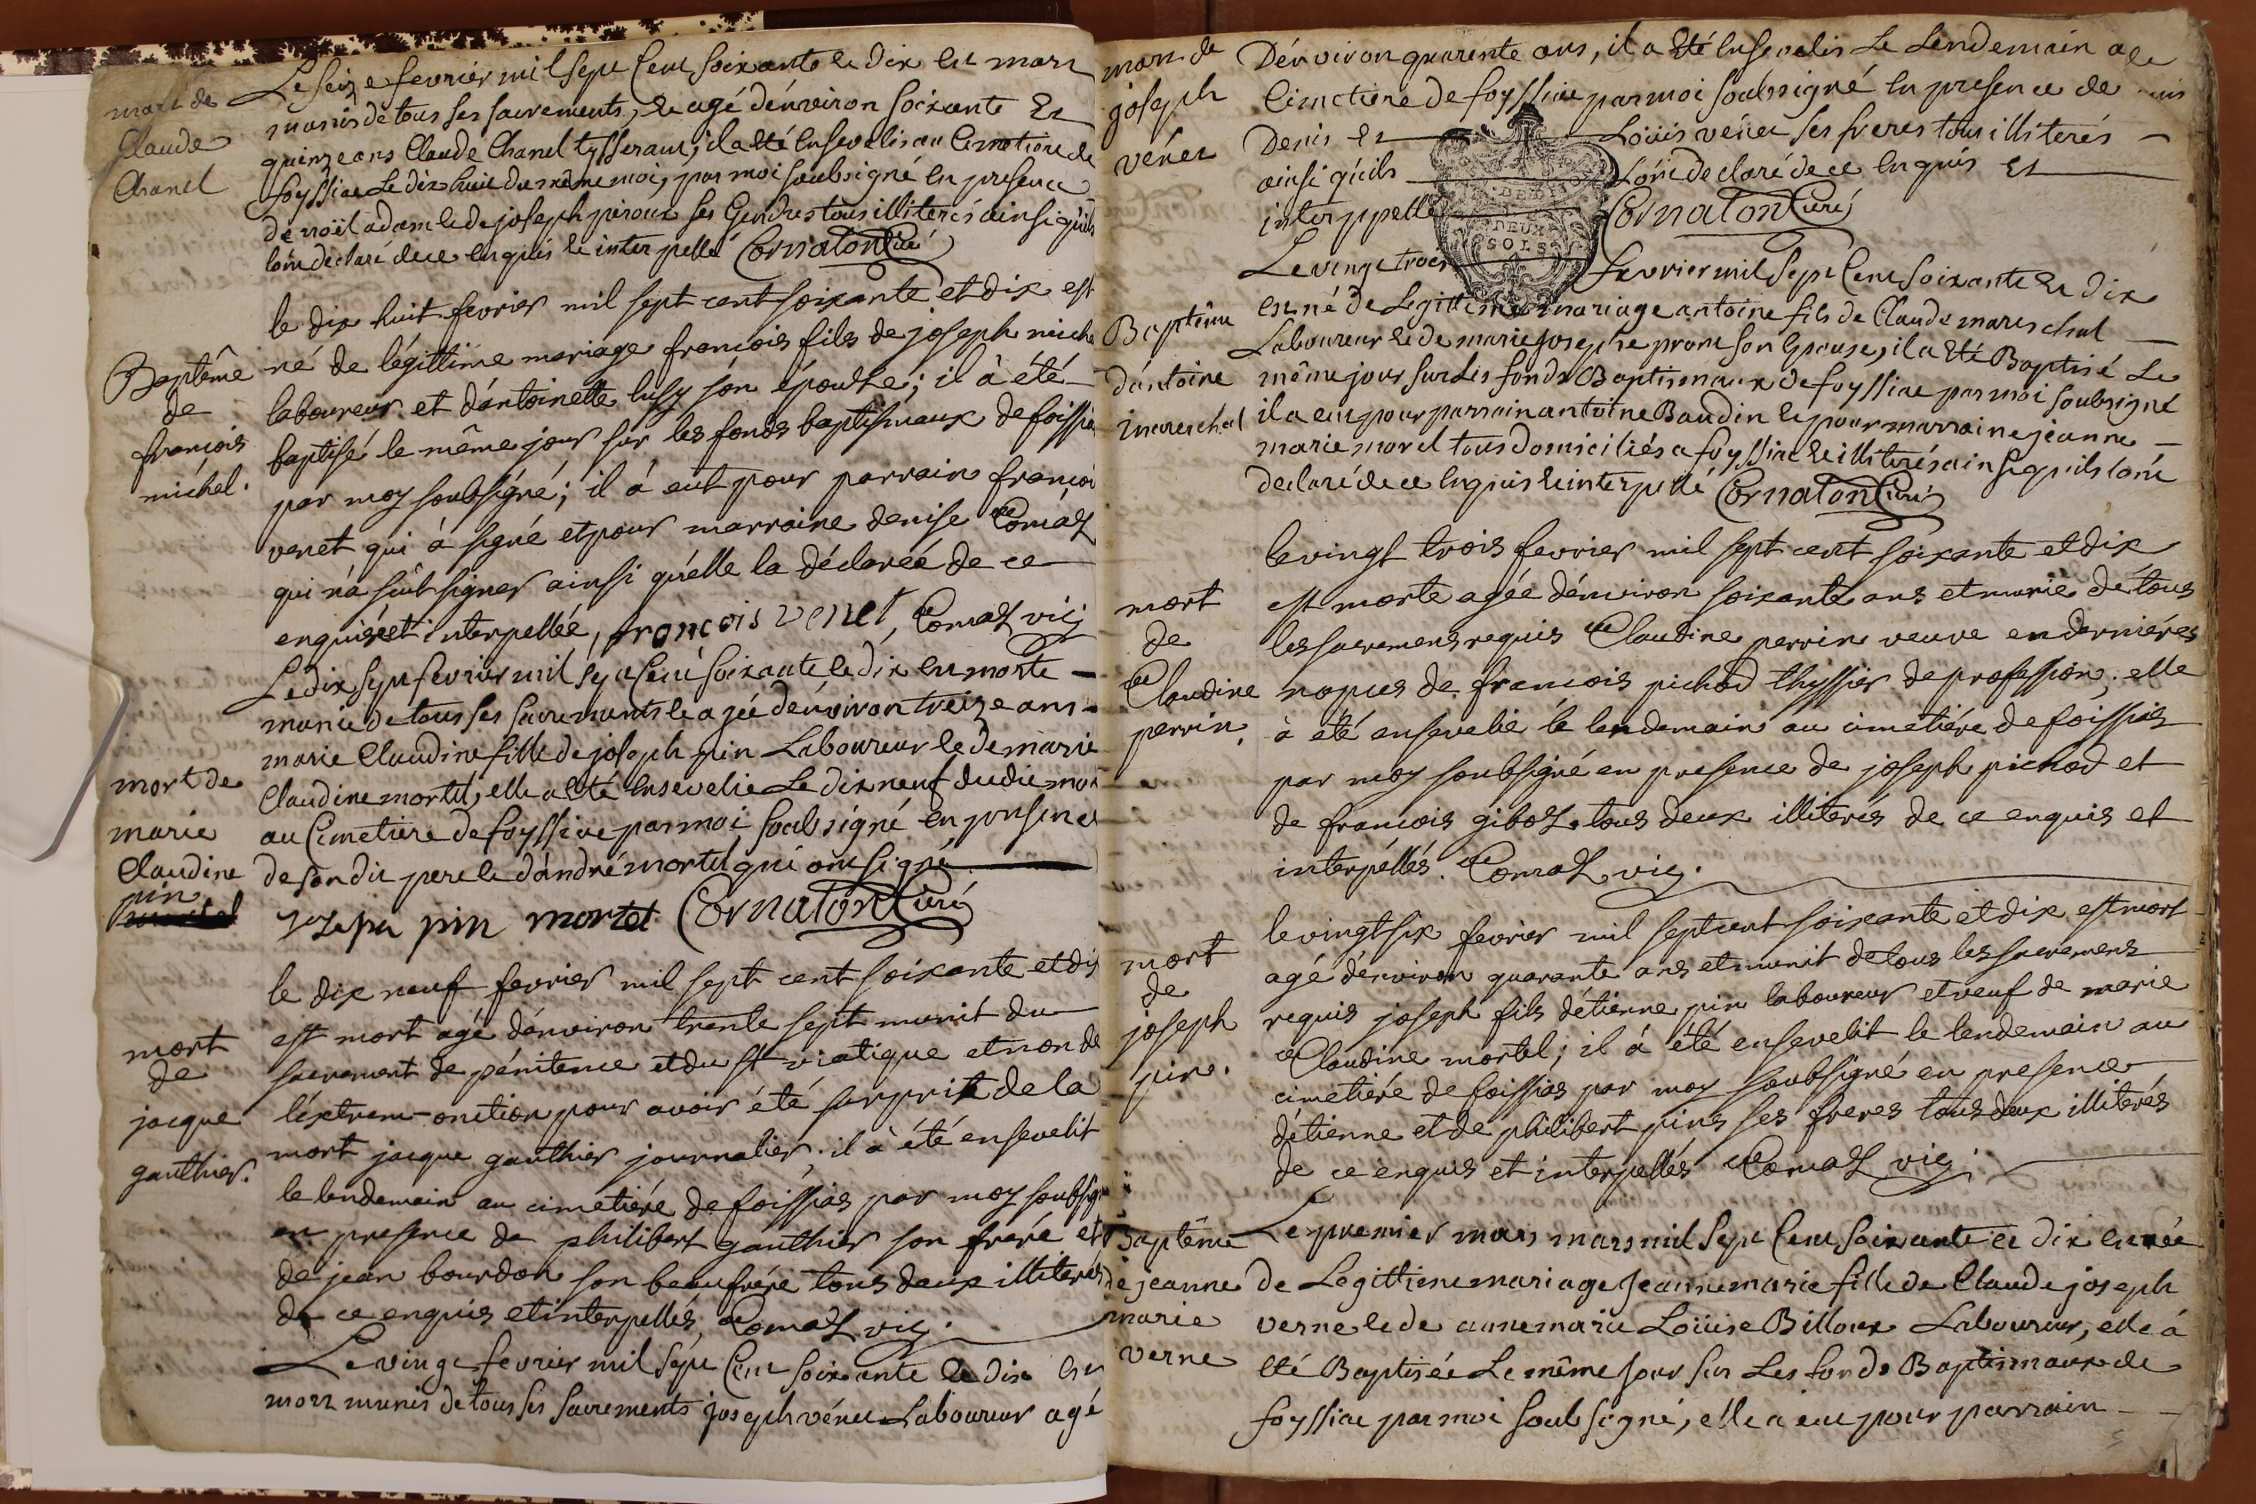 mort de
Claude
Chanel
Le seize fevrier mil sept Cent soixante et dix est mort
munis de tous ses sacrements, et agé d'énviron soixante Et
quinze ans Claude Chanel tysserant, il a été Ensevelis au Cimetiere de
foyssiac Le dix huit du même moi, par moi soubsigné En presence
de noël adam et de joseph piroux ses Gendres tous illiterés ainsi qu'ils
lont déclaré de ce Enquis et interpellé Cornaton Curé
Baptême
de
françois
michel.
le dix huit fevrier mil sept cent soixante et dix est
né de légittime mariage francois fils de joseph miche
laboureur et d'antoinette lusy son épouse; il à été
baptisé le même jour sur les fonds baptismaux de foissia
par moy soubsigné; il à eut pour parrain françoi
venet qui à signé et pour marraine denise Comas
qui n'a sûit signer ainsi qu'elle la déclareé de ce
enquise et interpellée, françois venet, Comas vic;
mort de
marie
Claudine
pin
Le dix sept fevrier mil sept Cent soixante et dix est morte
munie de tous ses sacrements et agée d'énviron treize ans
marie Claudine fille de joseph pin Laboureur et de marie
Claudine mortel, elle a été Ensevelie Le dix neuf dudit moi
au Cimetiere de foyssiac par moi soubsigné En presence
de son dit pere et d'andré mortel qui ont signé
josepu pin mortel Cornaton Curé
mort
de
jacque
gauthier.
le dix neuf fevrier mil sept cent soixante et dix
est mort agé d'énviron trente sept munit du
sacrement de pénitence et du st viatique et non de
l'éxtrem-onction pour avoir été surprit de la
mort jacque gauthier journalier, il à été ensevelit
le lendemain au cimetiére de foissias par moy soubsig
en presence de philibert gauthier son frere et
de jean bourdon son beaufrére tous deux illiterés
de ce enquis et interpellés, Comas vic;
Le vingt fevrier mil sept Cent soixante et dix Est
mort munis de tous ses sacrements joseph vénet Laboureur agé
mort de
joseph
vénet
Dénviron quarente ans, il a été Ensevelis Le Lendemain au
Cimetiere de foyssiac par moi soubsigné En presence de
Denis Et Loüis vénet ses freres tous illiterés
ainsi qu'ils Lont declaré de ce Enquis Et
interppellé Cornaton Curé
DEUX
SOLS
Baptême
d'antoine
marechal
Le vingt trois fevrier mil sept Cent soixante Et dix
est né de Legittime mariage antoine fils de Claude mareschal
Laboureur et de marie josephe prost son Epouse, il a été Baptisé Le
même jour sur Les fonds Baptismaux de foyssiac par moi soubsigné
il a eut pour parrain antoine Baudin et pour marraine jeanne
marie morel tous domiciliés a foyssiac et illiterés ainsi qu'ils lont
declaré de ce Enquis et interpellé Cornaton Curé
mort
de
Claudine
perrin.
le vingt trois fevrier mil sept cent soixante et dix
est morte agée d'énviron soixante ans et munie de tous
les sacremens requis Claudine perrin veuve en derniéres
nopces de francois pichod thyssier de profession; elle
à été ensevelie le lendemain au cimetiére de foissias
par moy soubsigné en presence de joseph pichod et
de francois gibos tous deux illiterés de ce enquis et
interpéllés. Comas vic;
mort
de
joseph
pin.
le vingt six fevrier mil sept cent soixante et dix est mort
agé d'énviron quarante ans et munit de tous les sacremens
requis joseph fils d'étienne pin laboureur et veuf de marie
Claudine mortel; il à été ensevelit le lendemain au
cimetiére de foissias par moy soubsigné en presence
d'étienne et de philibert pins ses freres tous deux illiterés
de ce enquis et interpellés Comas vic;
Baptême
de jeanne
marie
verne
Le premier mars mars mil sept Cent soixante et dix est née
de Legittime mariage Jeanne marie fille de Claude joseph
verne et de anne marie Loüise Billoux Laboureur, elle à
été Baptisée Le même jour sur Les fonds Baptismaux de
foyssiac par moi soubsigné, elle a eut pour parrain